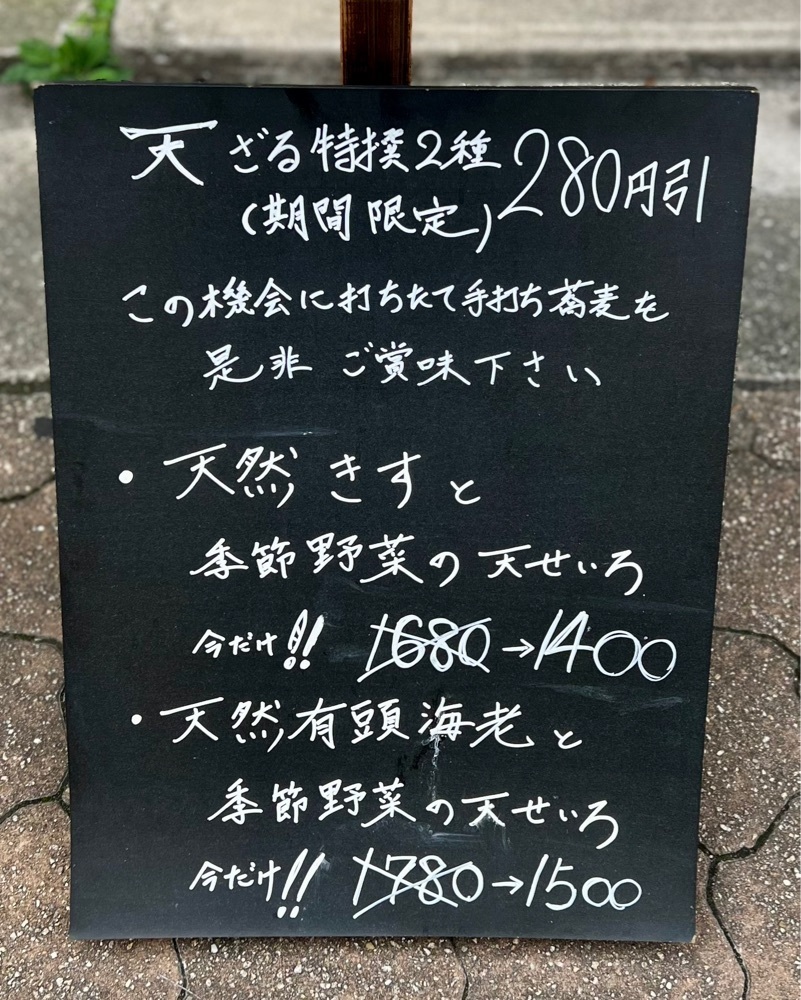 天ざる特撰2種 280円引
(期間限定)
この機会に打ちたて手打ち蕎麦を
是非 ご賞味下さい
・天然きすと
季節野菜の天せいろ
今だけ!! 1680→1400
・天然有頭海老と
季節野菜の天せいろ
今だけ!! 1780→1500